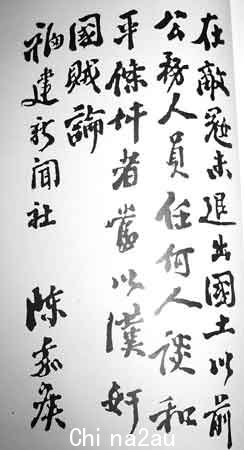 在敵寇未退出國土以前
公務人員任何人談和
平條件者當以漢奸
國賊論
福建新聞社 陳嘉庚
Chi na2au